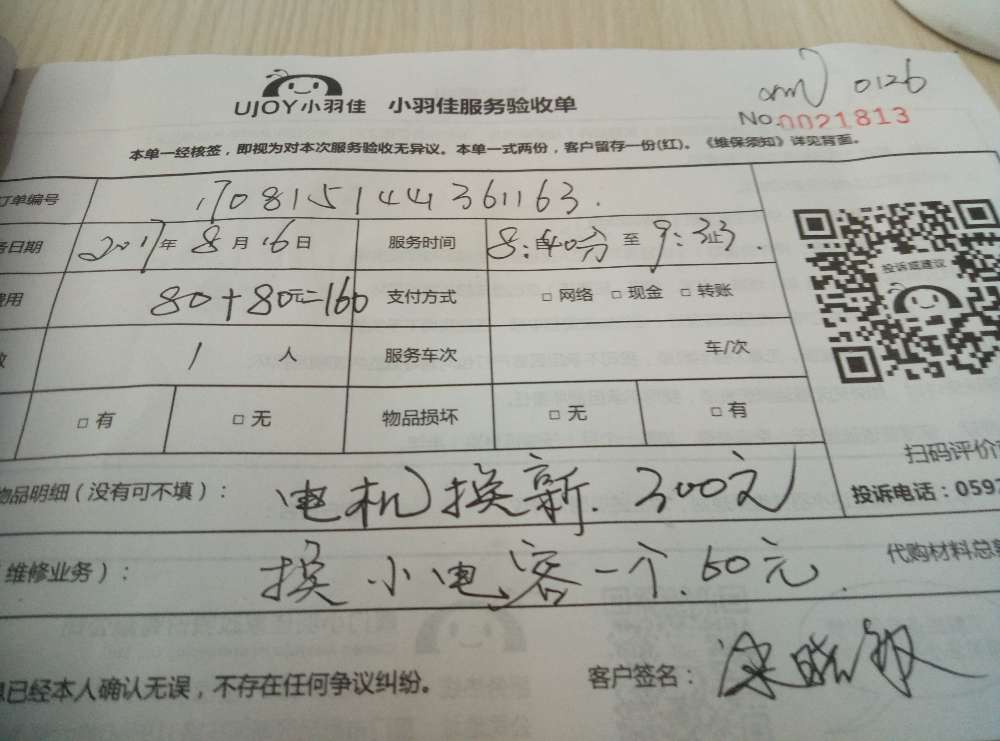 UJOY小羽佳 小羽佳服务验收单
0126
No.0021813
本单一经核签，即视为对本次服务验收无异议。本单一式两份，客户留存一份(红)。《维保须知》详见背面。
订单编号 170815144361163
务日期 2017年8月16日 服务时间 8:40分 至 9:33
费用 80+80元=160 支付方式 □ 网络 □ 现金 □ 转账
数 1 人 服务车次 车/次
□ 有 □ 无 物品损坏 □ 无 □ 有
投诉或建议
扫码评价
投诉电话：0592
物品明细（没有可不填）： 电机换新. 300元
代购材料总
维修业务）： 换小电容一个. 60元
息已经本人确认无误，不存在任何争议纠纷。 客户签名：